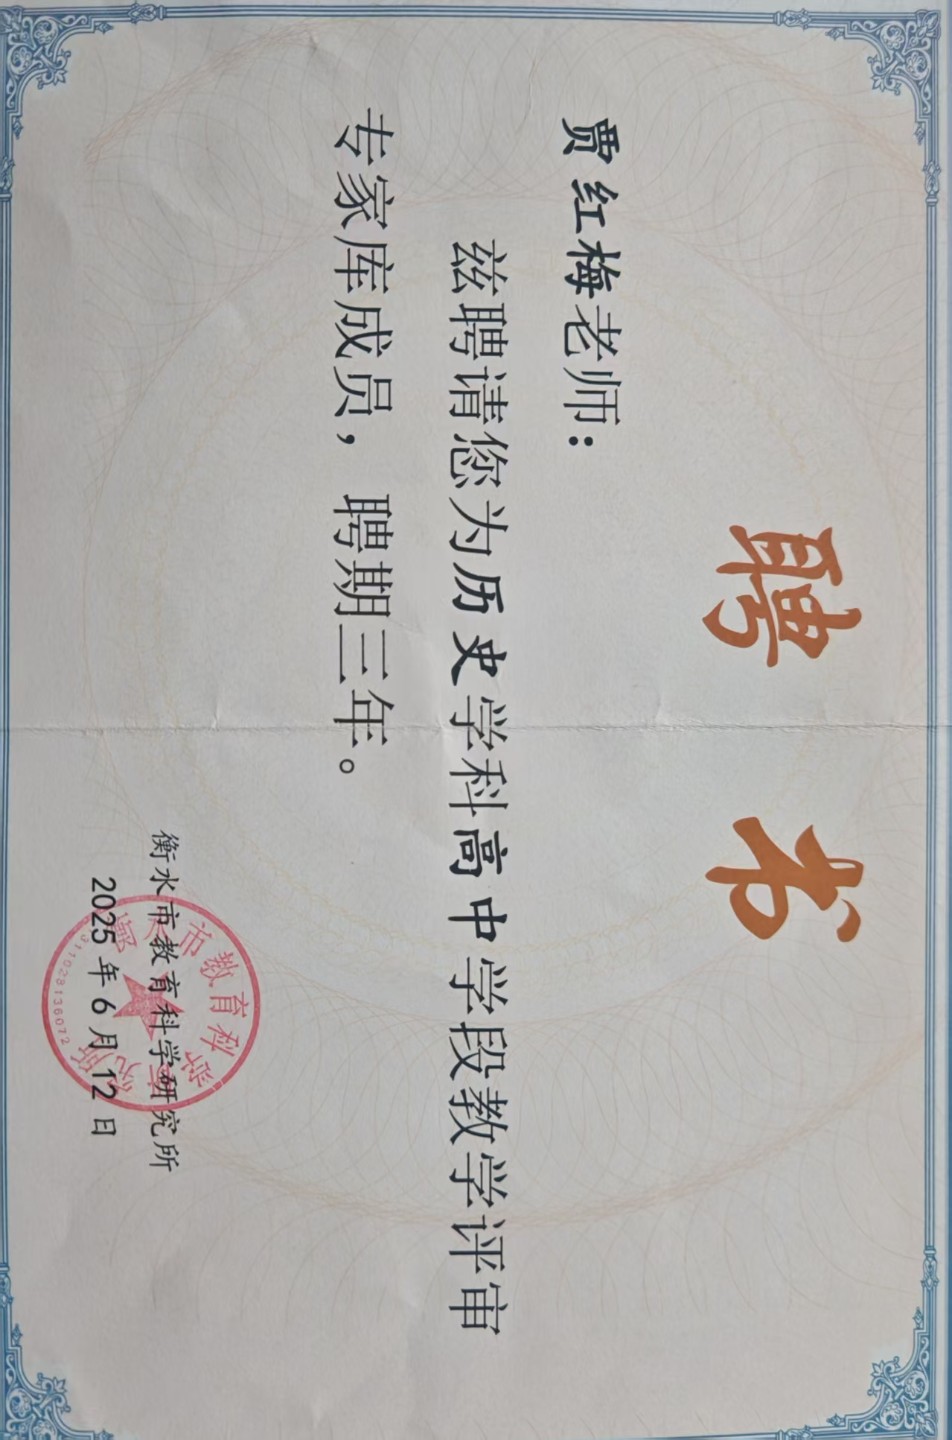 聘书
贾红梅老师：
兹聘请您为历史学科高中学段教学评审
专家库成员，聘期三年。
衡水市教育科学研究所
2025年6月12日